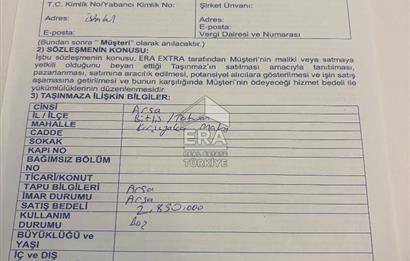 T.C. Kimlik No/Yabancı Kimlik No: Şirket Ünvanı:
Adres: Adres:
E-posta: E-posta:
Vergi Dairesi ve Numarası
(Bundan sonra " Müşteri" olarak anılacaktır.)
2) SÖZLEŞMENİN KONUSU:
İşbu sözleşmenin konusu, ERA EXTRA tarafından Müşteri'nin maliki veya satmaya
yetkili olduğunu beyan ettiği Taşınmaz'ın satılması amacıyla tanıtılması,
pazarlanması, satımına aracılık edilmesi, potansiyel alıcılara gösterilmesi ve işin satış
aşamasına getirilmesi ve bunun karşılığında Müşteri'nin ödeyeceği hizmet bedeli ile
yükümlülüklerinin düzenlenmesidir.
3) TAŞINMAZA İLİŞKİN BİLGİLER:
CİNSİ Arsa
İL / İLÇE Bitlis / Tatvan
MAHALLE
CADDE
SOKAK
KAPI NO
BAĞIMSIZ BÖLÜM
NO
TİCARİ/KONUT
TAPU BİLGİLERİ Arsa
İMAR DURUMU Arsa
SATIŞ BEDELİ 2.850.000
KULLANIM
DURUMU Boş
BÜYÜKLÜĞÜ ve
YAŞI
İÇ ve DIŞ
ERA
REAL ESTATE
TÜRKİYE